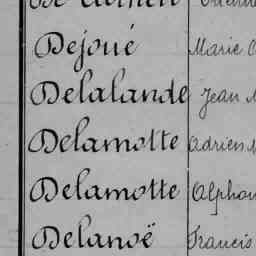 Dejoué Marie
Delalande Jean
Delamotte Adrien
Delamotte Alphon
Delanoë Francis